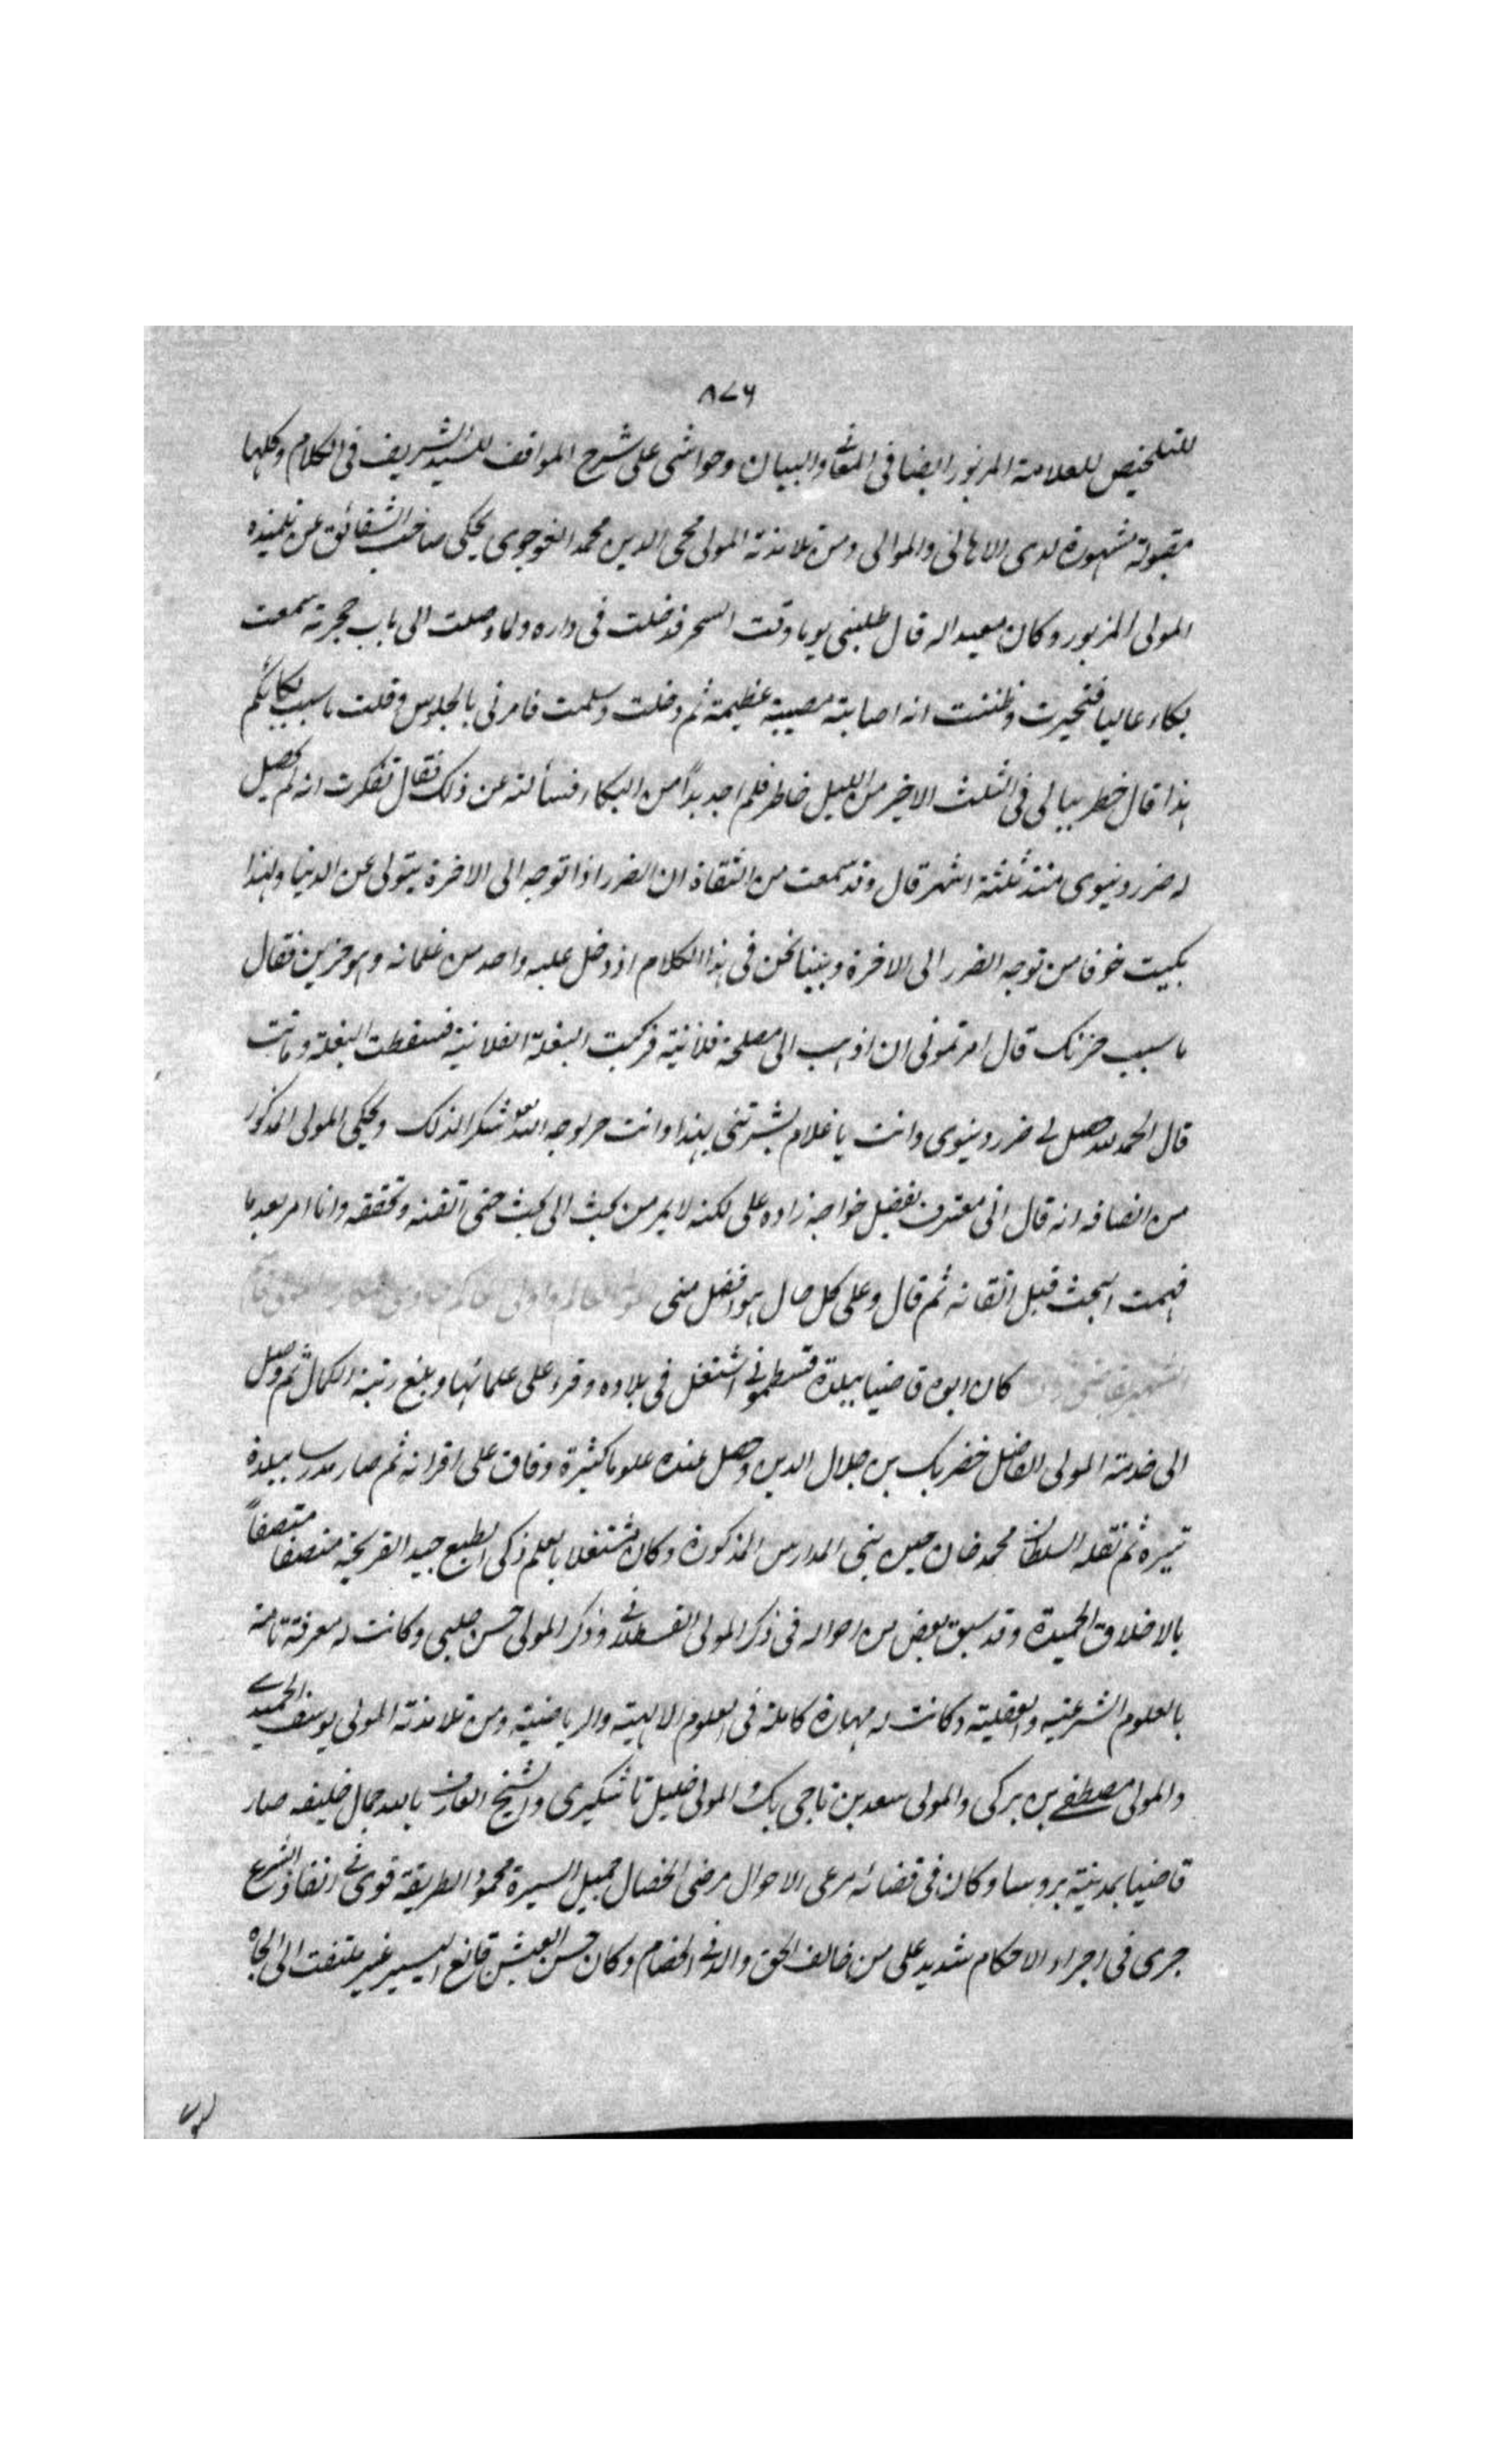 ٨٧٦
للتلخيص للعلامة المزبور ايضا فى المعانى والبيان وحواشى على شرح المواقف للسيد الشريف فى الكلام وكلها
مقبولة مشهورة لدى الاهالى والموالى ومن تلامذته المولى محى الدين محمد القوجوى يحكى صاحب الشقائق عن تلميذه
المولى المزبور وكان معيدا له قال طلبنى يوما وقت السحر فدخلت فى داره ولما وصلت الى باب حجرته سمعت
بكاء عاليا فتحيرت وظننت انه اصابته مصيبة عظيمة ثم دخلت وسلمت فامرنى بالجلوس وقلت ما سبب بكائكم
هذا قال خطر ببالى فى الثلث الاخير من الليل خاطر فلم اجد بداً من البكاء فسألته عن ذلك فقال تفكرت انه لم يحصل
له ضرر دنيوى منذ ثلثة اشهر قال وقد سمعت من الثقاة ان الضرر اذا توجه الى الاخرة يتولى عن الدنيا ولهذا
بكيت خوفا من توجه الضرر الى الاخرة وبينا نحن فى هذا الكلام اذ دخل عليه واحد من غلمانه وهو حزين فقال
ما سبب حزنك قال امرتمونى ان اذهب الى مصلحة فلانية فركبت البغلة الفلانية فسقطت البغلة وماتت
قال الحمد لله حصل لى ضرر دنيوى وانت يا غلام بشرتنى بهذا وانت حر لوجه الله تعالى شكرا لذلك ويحكى المولى المذكور
من انصافه انه قال انى معترف بفضل خواجه زاده على لكنه لا يمر من بحث الى بحث حتى اتقنه وتحققه وانا امر بعد ما
فهمت البحث قبل اتقانه ثم قال وعلى كل حال هو افضل منى
كان ابوه قاضيا ببلدة قسطمونى اشتغل فى بلاده وقرء على علمائها وبلغ رتبة الكمال ثم وصل
الى خدمة المولى الفاضل خضر بك بن جلال الدين وحصل عنده علوما كثيرة وفاق على اقرانه ثم صار مدرسا ببلدة
تيره ثم نقله السلطان محمد خان حين بنى المدارس المذكورة وكان مشتغلا بالعلم ذكى الطبع جيد القريحة منصفا متصفاً
بالاخلاق الحميدة وقد سبق بعض من احواله فى ذكر المولى القسطلانى وذكر المولى حسن چلبى وكانت له معرفة تامة
بالعلوم الشرعية والعقلية وكانت له مهارة كاملة فى العلوم الالهية والرياضية ومن تلامذته المولى يوسف الحميدى
والمولى مصطفى بن بركى والمولى سعد بن تاجى بك والمولى خليل تاشكبرى والشيخ العارف بالله جمال خليفه صار
قاضيا بمدينة بروسا وكان فى قضائه مرعى الاحوال مرضى الخصال جميل السيرة محمود الطريقة قوى فى انفاذ الشرع
جرى فى اجراء الاحكام شديد على من خالف الحق والد فى الخصام وكان حسن العيش قانع اليسير غير ملتفت الى الجاه